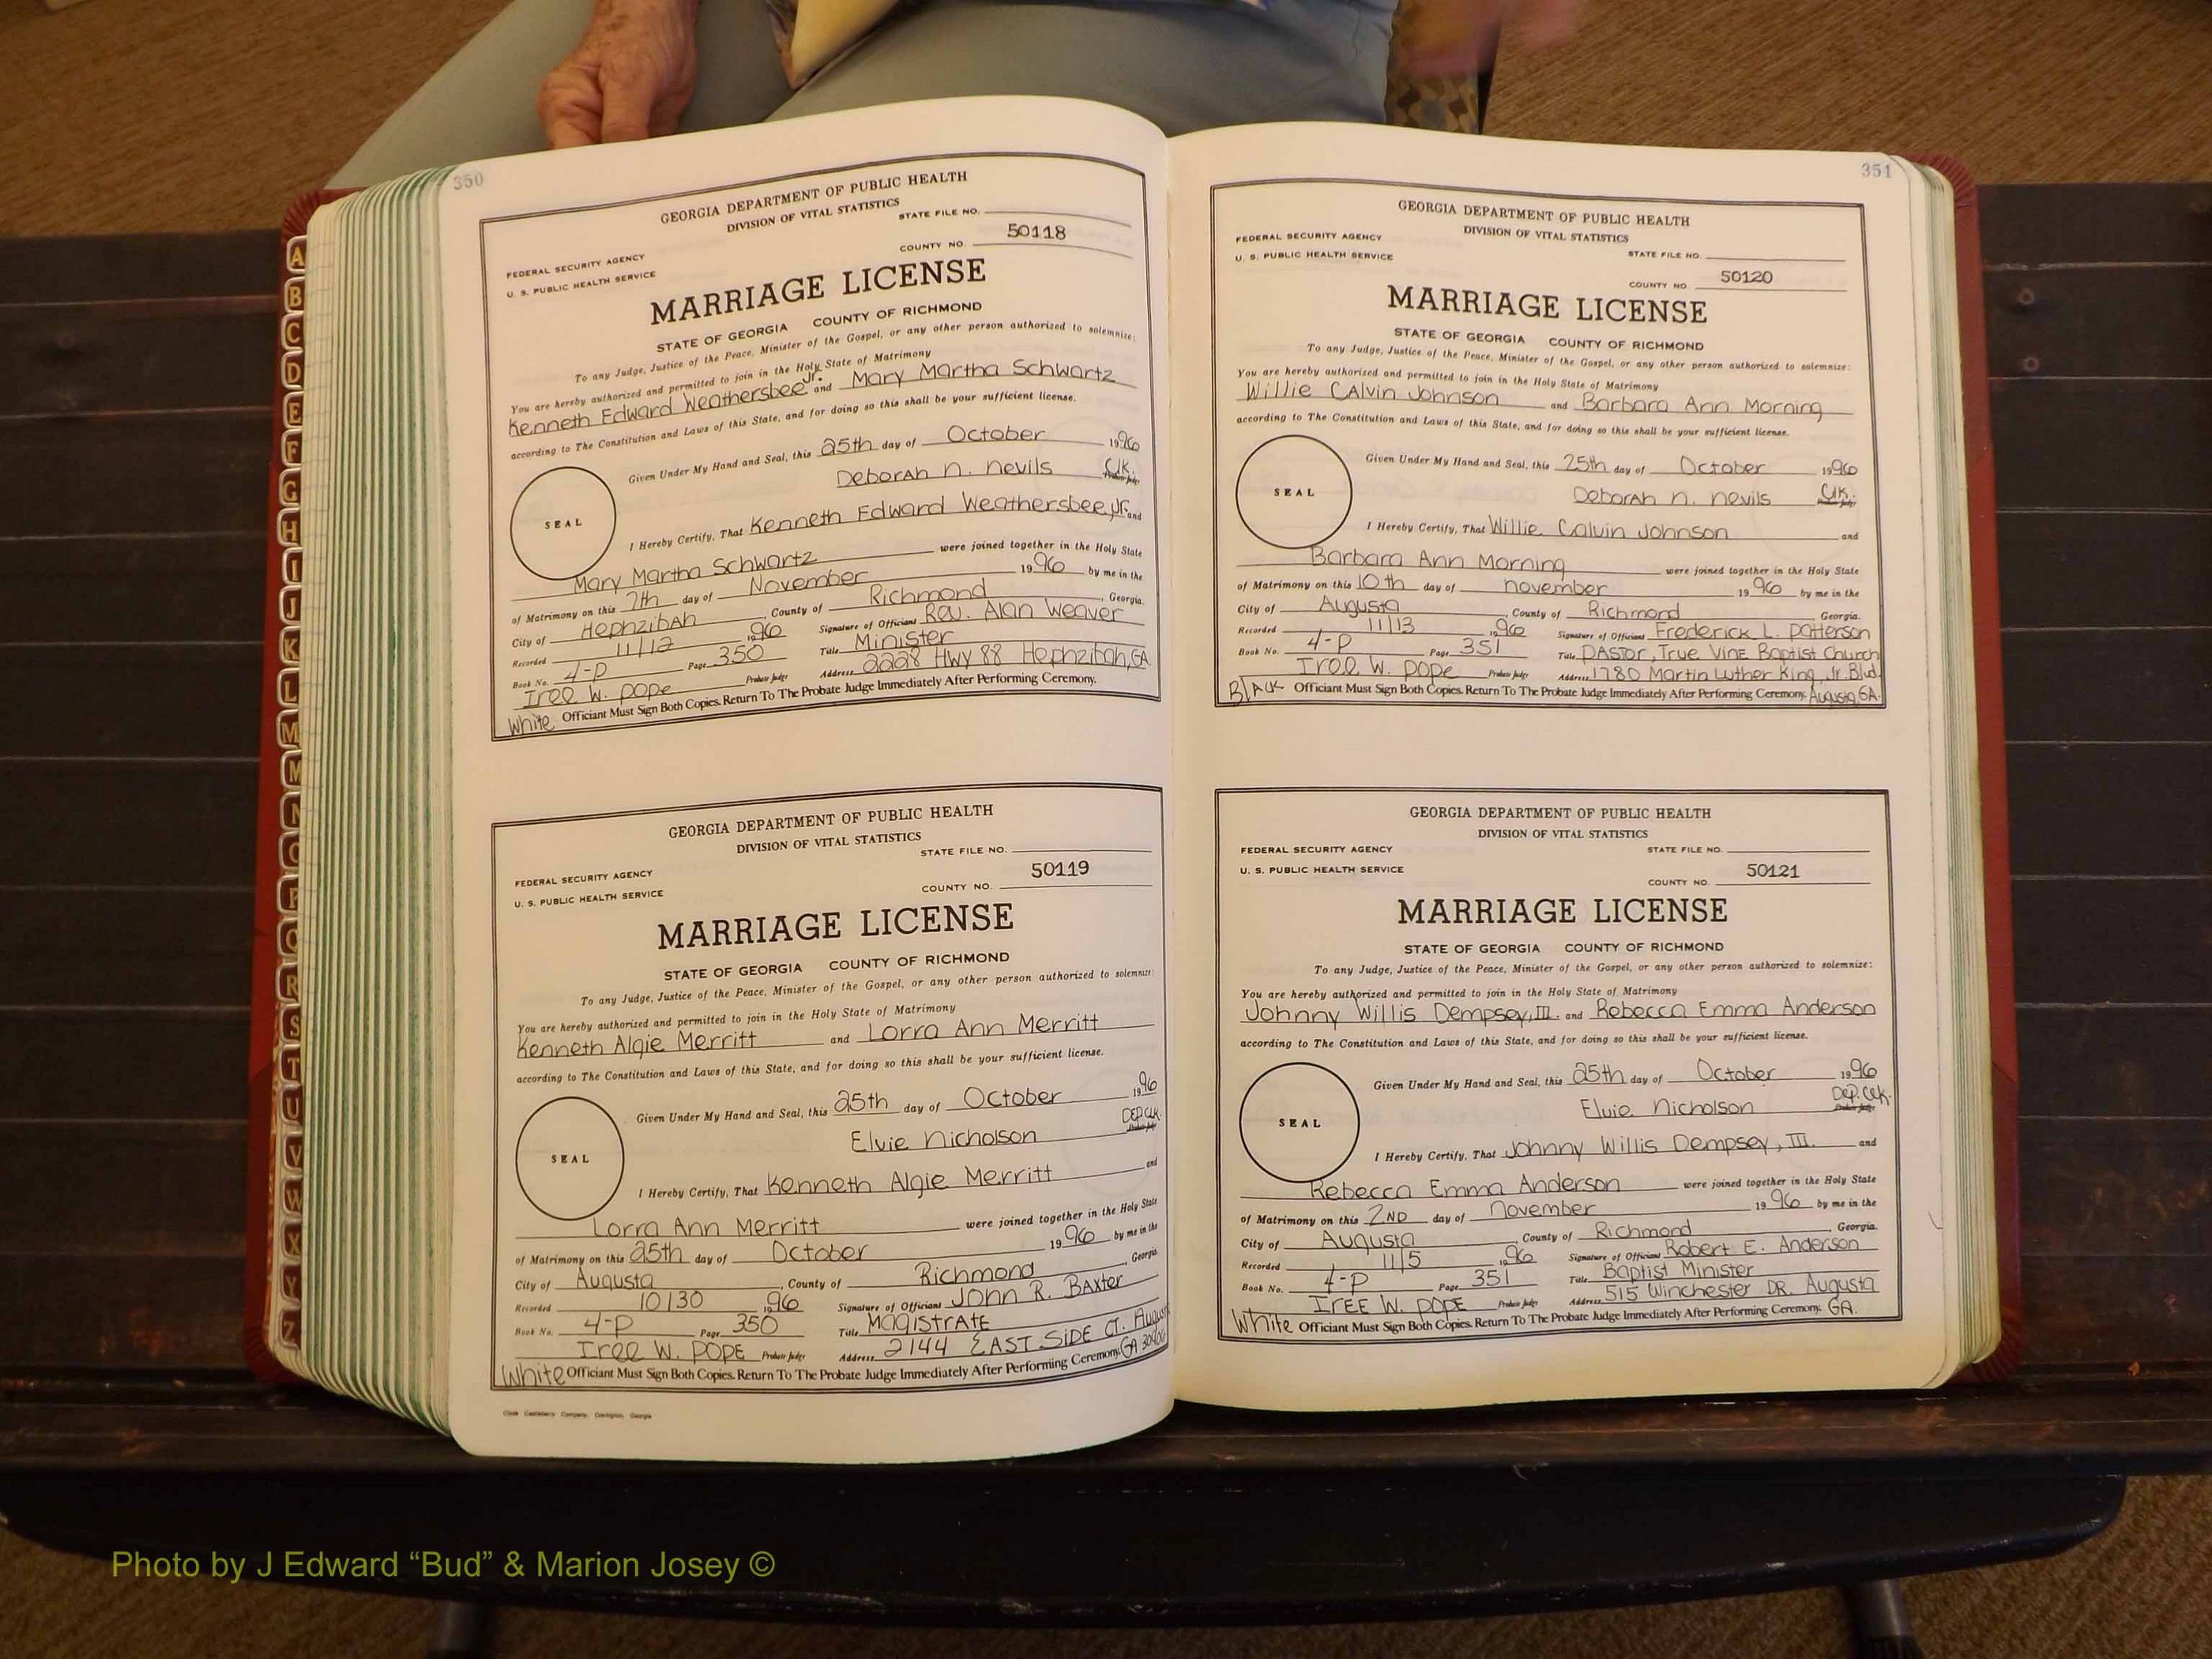 350
GEORGIA DEPARTMENT OF PUBLIC HEALTH
DIVISION OF VITAL STATISTICS
STATE FILE NO.
50118
FEDERAL SECURITY AGENCY
COUNTY NO.
U. S. PUBLIC HEALTH SERVICE
MARRIAGE LICENSE
STATE OF GEORGIA COUNTY OF RICHMOND
To any Judge, Justice of the Peace, Minister of the Gospel, or any other person authorized to solemnize:
You are hereby authorized and permitted to join in the Holy State of Matrimony
Kenneth Edward Weathersbee Jr. and Mary Martha Schwartz
according to The Constitution and Laws of this State, and for doing so this shall be your sufficient license.
Given Under My Hand and Seal, this 25th day of October 1996
Deborah n. nevils Clk.
Probate Judge
SEAL
I Hereby Certify, That Kenneth Edward Weathersbee, Jr. and
Mary Martha Schwartz were joined together in the Holy State
of Matrimony on this 7th day of November 1996 by me in the
City of Hephzibah, County of Richmond, Georgia.
Recorded 11/12 1996 Signature of Officiant Rev. Alan Weaver
Book No. 4-P Page 350 Title Minister
Iree W. Pope Probate Judge Address 2228 Hwy 88 Hephzibah, GA.
White Officiant Must Sign Both Copies. Return To The Probate Judge Immediately After Performing Ceremony.
GEORGIA DEPARTMENT OF PUBLIC HEALTH
DIVISION OF VITAL STATISTICS
STATE FILE NO.
50119
FEDERAL SECURITY AGENCY
COUNTY NO.
U. S. PUBLIC HEALTH SERVICE
MARRIAGE LICENSE
STATE OF GEORGIA COUNTY OF RICHMOND
To any Judge, Justice of the Peace, Minister of the Gospel, or any other person authorized to solemnize:
You are hereby authorized and permitted to join in the Holy State of Matrimony
Kenneth Algie Merritt and Lorra Ann Merritt
according to The Constitution and Laws of this State, and for doing so this shall be your sufficient license.
Given Under My Hand and Seal, this 25th day of October 1996
Elvie Nicholson DEP. Clk.
Probate Judge
SEAL
I Hereby Certify, That Kenneth Algie Merritt and
Lorra Ann Merritt were joined together in the Holy State
of Matrimony on this 25th day of October 1996 by me in the
City of Augusta, County of Richmond, Georgia.
Recorded 10/30 1996 Signature of Officiant John R. Baxter
Book No. 4-P Page 350 Title MAGISTRATE
Iree W. POPE Probate Judge Address 2144 EAST SIDE CT. August
White Officiant Must Sign Both Copies. Return To The Probate Judge Immediately After Performing Ceremony. GA
351
GEORGIA DEPARTMENT OF PUBLIC HEALTH
DIVISION OF VITAL STATISTICS
FEDERAL SECURITY AGENCY
STATE FILE NO.
U. S. PUBLIC HEALTH SERVICE
50120
COUNTY NO.
MARRIAGE LICENSE
STATE OF GEORGIA COUNTY OF RICHMOND
To any Judge, Justice of the Peace, Minister of the Gospel, or any other person authorized to solemnize:
You are hereby authorized and permitted to join in the Holy State of Matrimony
Willie CAlvin Johnson and Barbara Ann Morning
according to The Constitution and Laws of this State, and for doing so this shall be your sufficient license.
Given Under My Hand and Seal, this 25th day of October 1996
Deborah n. nevils Clk.
Probate Judge
SEAL
I Hereby Certify, That Willie Calvin Johnson and
Barbara Ann Morning were joined together in the Holy State
of Matrimony on this 10th day of november 1996 by me in the
City of Augusta, County of Richmond Georgia.
Recorded 11/13 1996 Signature of Officiant Frederick L. Patterson
Book No. 4-P Page 351 Title PAStor, True Vine Baptist Church
Iree W. Pope Probate Judge Address 1780 Martin Luther King, Jr. Blvd.
BlAck Officiant Must Sign Both Copies. Return To The Probate Judge Immediately After Performing Ceremony. Augusta, GA.
GEORGIA DEPARTMENT OF PUBLIC HEALTH
DIVISION OF VITAL STATISTICS
FEDERAL SECURITY AGENCY
STATE FILE NO.
U. S. PUBLIC HEALTH SERVICE
50121
COUNTY NO.
MARRIAGE LICENSE
STATE OF GEORGIA COUNTY OF RICHMOND
To any Judge, Justice of the Peace, Minister of the Gospel, or any other person authorized to solemnize:
You are hereby authorized and permitted to join in the Holy State of Matrimony
Johnny Willis Dempsey, III. and Rebecca Emma Anderson
according to The Constitution and Laws of this State, and for doing so this shall be your sufficient license.
Given Under My Hand and Seal, this 25th day of October 1996
Elvie Nicholson Dep. Clk.
Probate Judge
SEAL
I Hereby Certify, That Johnny Willis Dempsey, III. and
Rebecca Emma Anderson were joined together in the Holy State
of Matrimony on this 2ND day of november 1996 by me in the
City of Augusta, County of Richmond, Georgia.
Recorded 11/5 1996 Signature of Officiant Robert E. Anderson
Book No. 4-P Page 351 Title Baptist Minister
IREE W. POPE Probate Judge Address 515 Winchester DR. Augusta
White Officiant Must Sign Both Copies. Return To The Probate Judge Immediately After Performing Ceremony. GA.
A
B
C
D
E
F
G
H
I
J
K
L
M
M
N
O
P
Q
R
S
T
U
V
W
X
Y
Z
Photo by J Edward “Bud” & Marion Josey ©